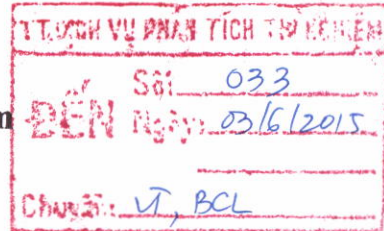 TT.DỊCH VỤ PHÂN TÍCH THÍ NGHIỆM
m ĐẾN
Số: 033
Ngày: 03/6/2015
Chuyển: VT, BCL